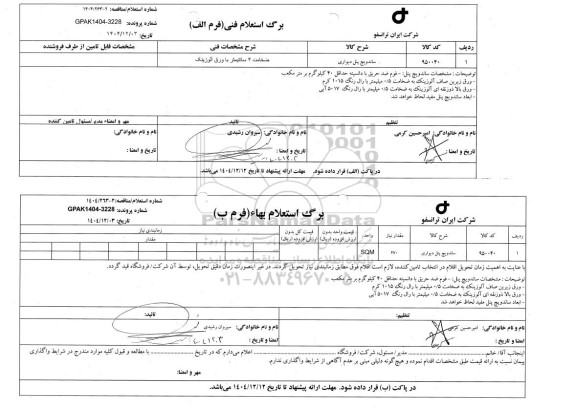 شماره استعلام/مناقصه: ۱۴۰۴/۲۶۳۰۲
برگ استعلام فنی(فرم الف)
شماره پرونده: GPAK1404-3228
تاریخ: ۱۴۰۴/۱۲/۰۳
شرکت ایران ترانسفو
ردیف کد کالا شرح کالا شرح مشخصات فنی مشخصات قابل تامین از طرف فروشنده
۱ ۹۵۰۰۴۰ ساندویچ پنل دیواری ضخامت ۴ سانتیمتر با ورق آلوزینک
توضیحات : مشخصات ساندویچ پنل: - فوم ضد حریق با دانسیته حداقل ۴۰ کیلوگرم بر متر مکعب
- ورق زیرین صاف آلوزینک به ضخامت ۰/۵ میلیمتر با رال رنگ ۱۰۱۵ کرم
- ورق بالا ذوزنقه ای آلوزینک به ضخامت ۰/۵ میلیمتر با رال رنگ ۵۰۱۷ آبی
- ابعاد ساندویچ پنل مفید لحاظ خواهد شد.
تنظیم تائید: مهر و امضاء مدیر/مسئول تامین کننده
نام و نام خانوادگی: امیرحسین کرمی نام و نام خانوادگی: سیروان رشیدی نام و نام خانوادگی:
تاریخ و امضا : تاریخ و امضا : تاریخ و امضا :
در پاکت (الف) قرار داده شود. مهلت ارائه پیشنهاد تا تاریخ ۱۴۰۴/۱۲/۱۲ می‌باشد.
شماره استعلام/مناقصه: ۱۴۰۴/۲۶۳۰۲
برگ استعلام بهاء(فرم ب)
شماره پرونده: GPAK1404-3228
تاریخ: ۱۴۰۴/۱۲/۰۳
شرکت ایران ترانسفو
ردیف کد کالا شرح کالا مقدار نیاز واحد قیمت واحد بدون ارزش افزوده (ریال) قیمت کل بدون ارزش افزوده (ریال) زمانبندی نیاز
مقدار
۱ ۹۵۰۰۴۰ ساندویچ پنل دیواری SQM
با عنایت به اهمیت زمان تحویل اقلام در انتخاب تامین‌کننده، لازم است اقلام فوق مطابق زمانبندی نیاز تحویل گردند. در غیر اینصورت زمان دقیق تحویل، توسط آن شرکت/ فروشگاه قید گردد.
توضیحات : مشخصات ساندویچ پنل: - فوم ضد حریق با دانسیته حداقل ۴۰ کیلوگرم بر متر مکعب
- ورق زیرین صاف آلوزینک به ضخامت ۰/۵ میلیمتر با رال رنگ ۱۰۱۵ کرم
- ورق بالا ذوزنقه ای آلوزینک به ضخامت ۰/۵ میلیمتر با رال رنگ ۵۰۱۷ آبی
- ابعاد ساندویچ پنل مفید لحاظ خواهد شد
۰۲۱-۸۸۳۴۹۶۷۰
تنظیم: تائید:
نام و نام خانوادگی: امیر حسین کرمی نام و نام خانوادگی: سیروان رشیدی
امضا و تاریخ : امضا و تاریخ :
اینجانب آقا/ خانم مدیر/مسئول، شرکت/ فروشگاه اعلام می‌دارم که در تاریخ با مطالعه و قبول کلیه موارد مندرج در شرایط واگذاری
پیمان نسبت به ارائه قیمت طبق مشخصات اقدام نموده و هیچ‌گونه دلیلی مبنی بر عدم آگاهی از شرایط واگذاری ندارم.
مهر و امضاء :
در پاکت (ب) قرار داده شود. مهلت ارائه پیشنهاد تا تاریخ ۱۴۰۴/۱۲/۱۲ می‌باشد.